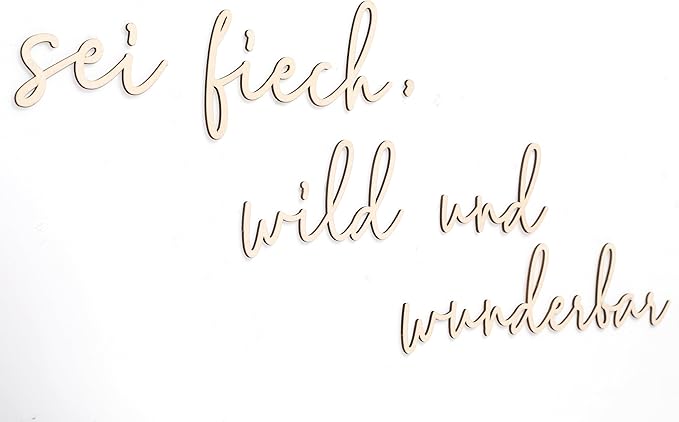 sei fiech,
wild und
wunderbar